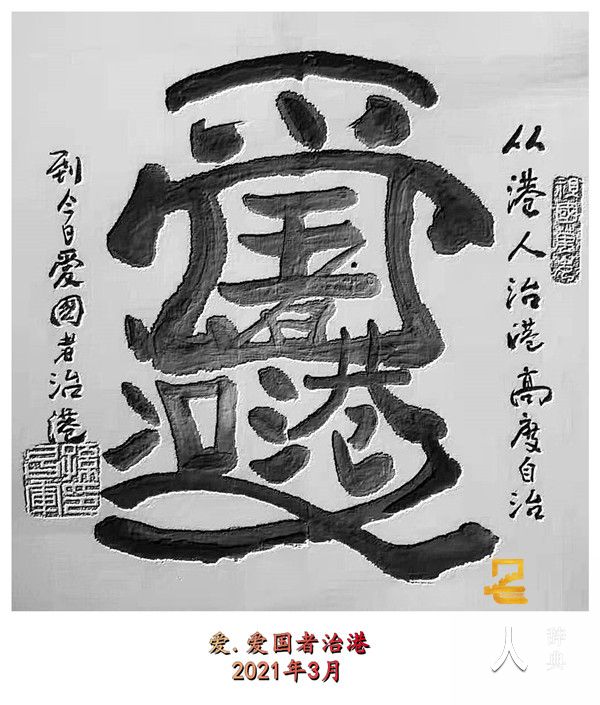 从港人治港高度自治
到今日爱国者治港
爱.爱国者治港
2021年3月
人
辞典